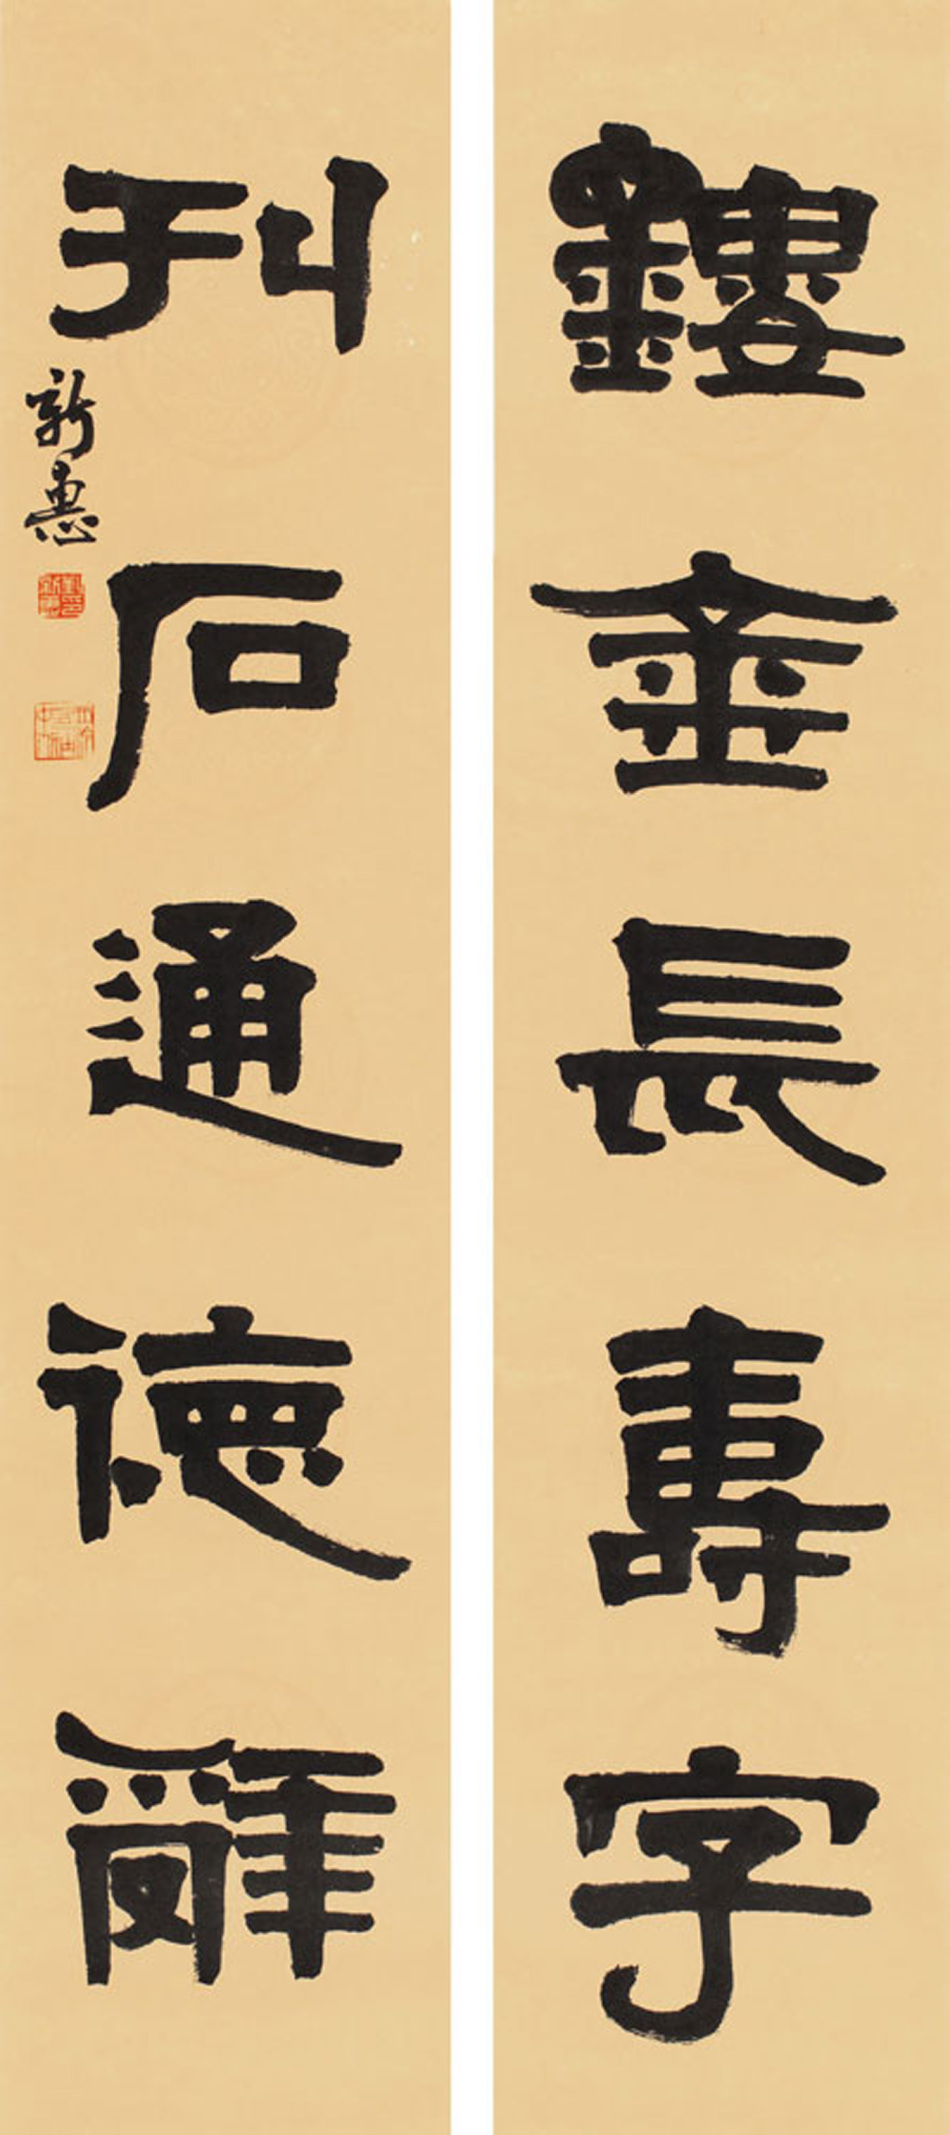 鏤金長壽字
刊石通德辭
新惠